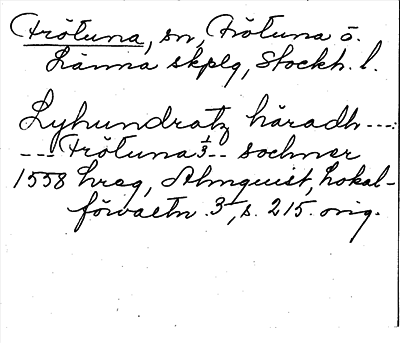 Frötuna, sn, Frötuna o.
Länna skplg, Stockh. l.
Lyhundratz häradh ---:
--- Frötuna 1/3 -- sochner
1558 hreg, Almquist, Lokal-
förvaltn. 3, s. 215. orig.